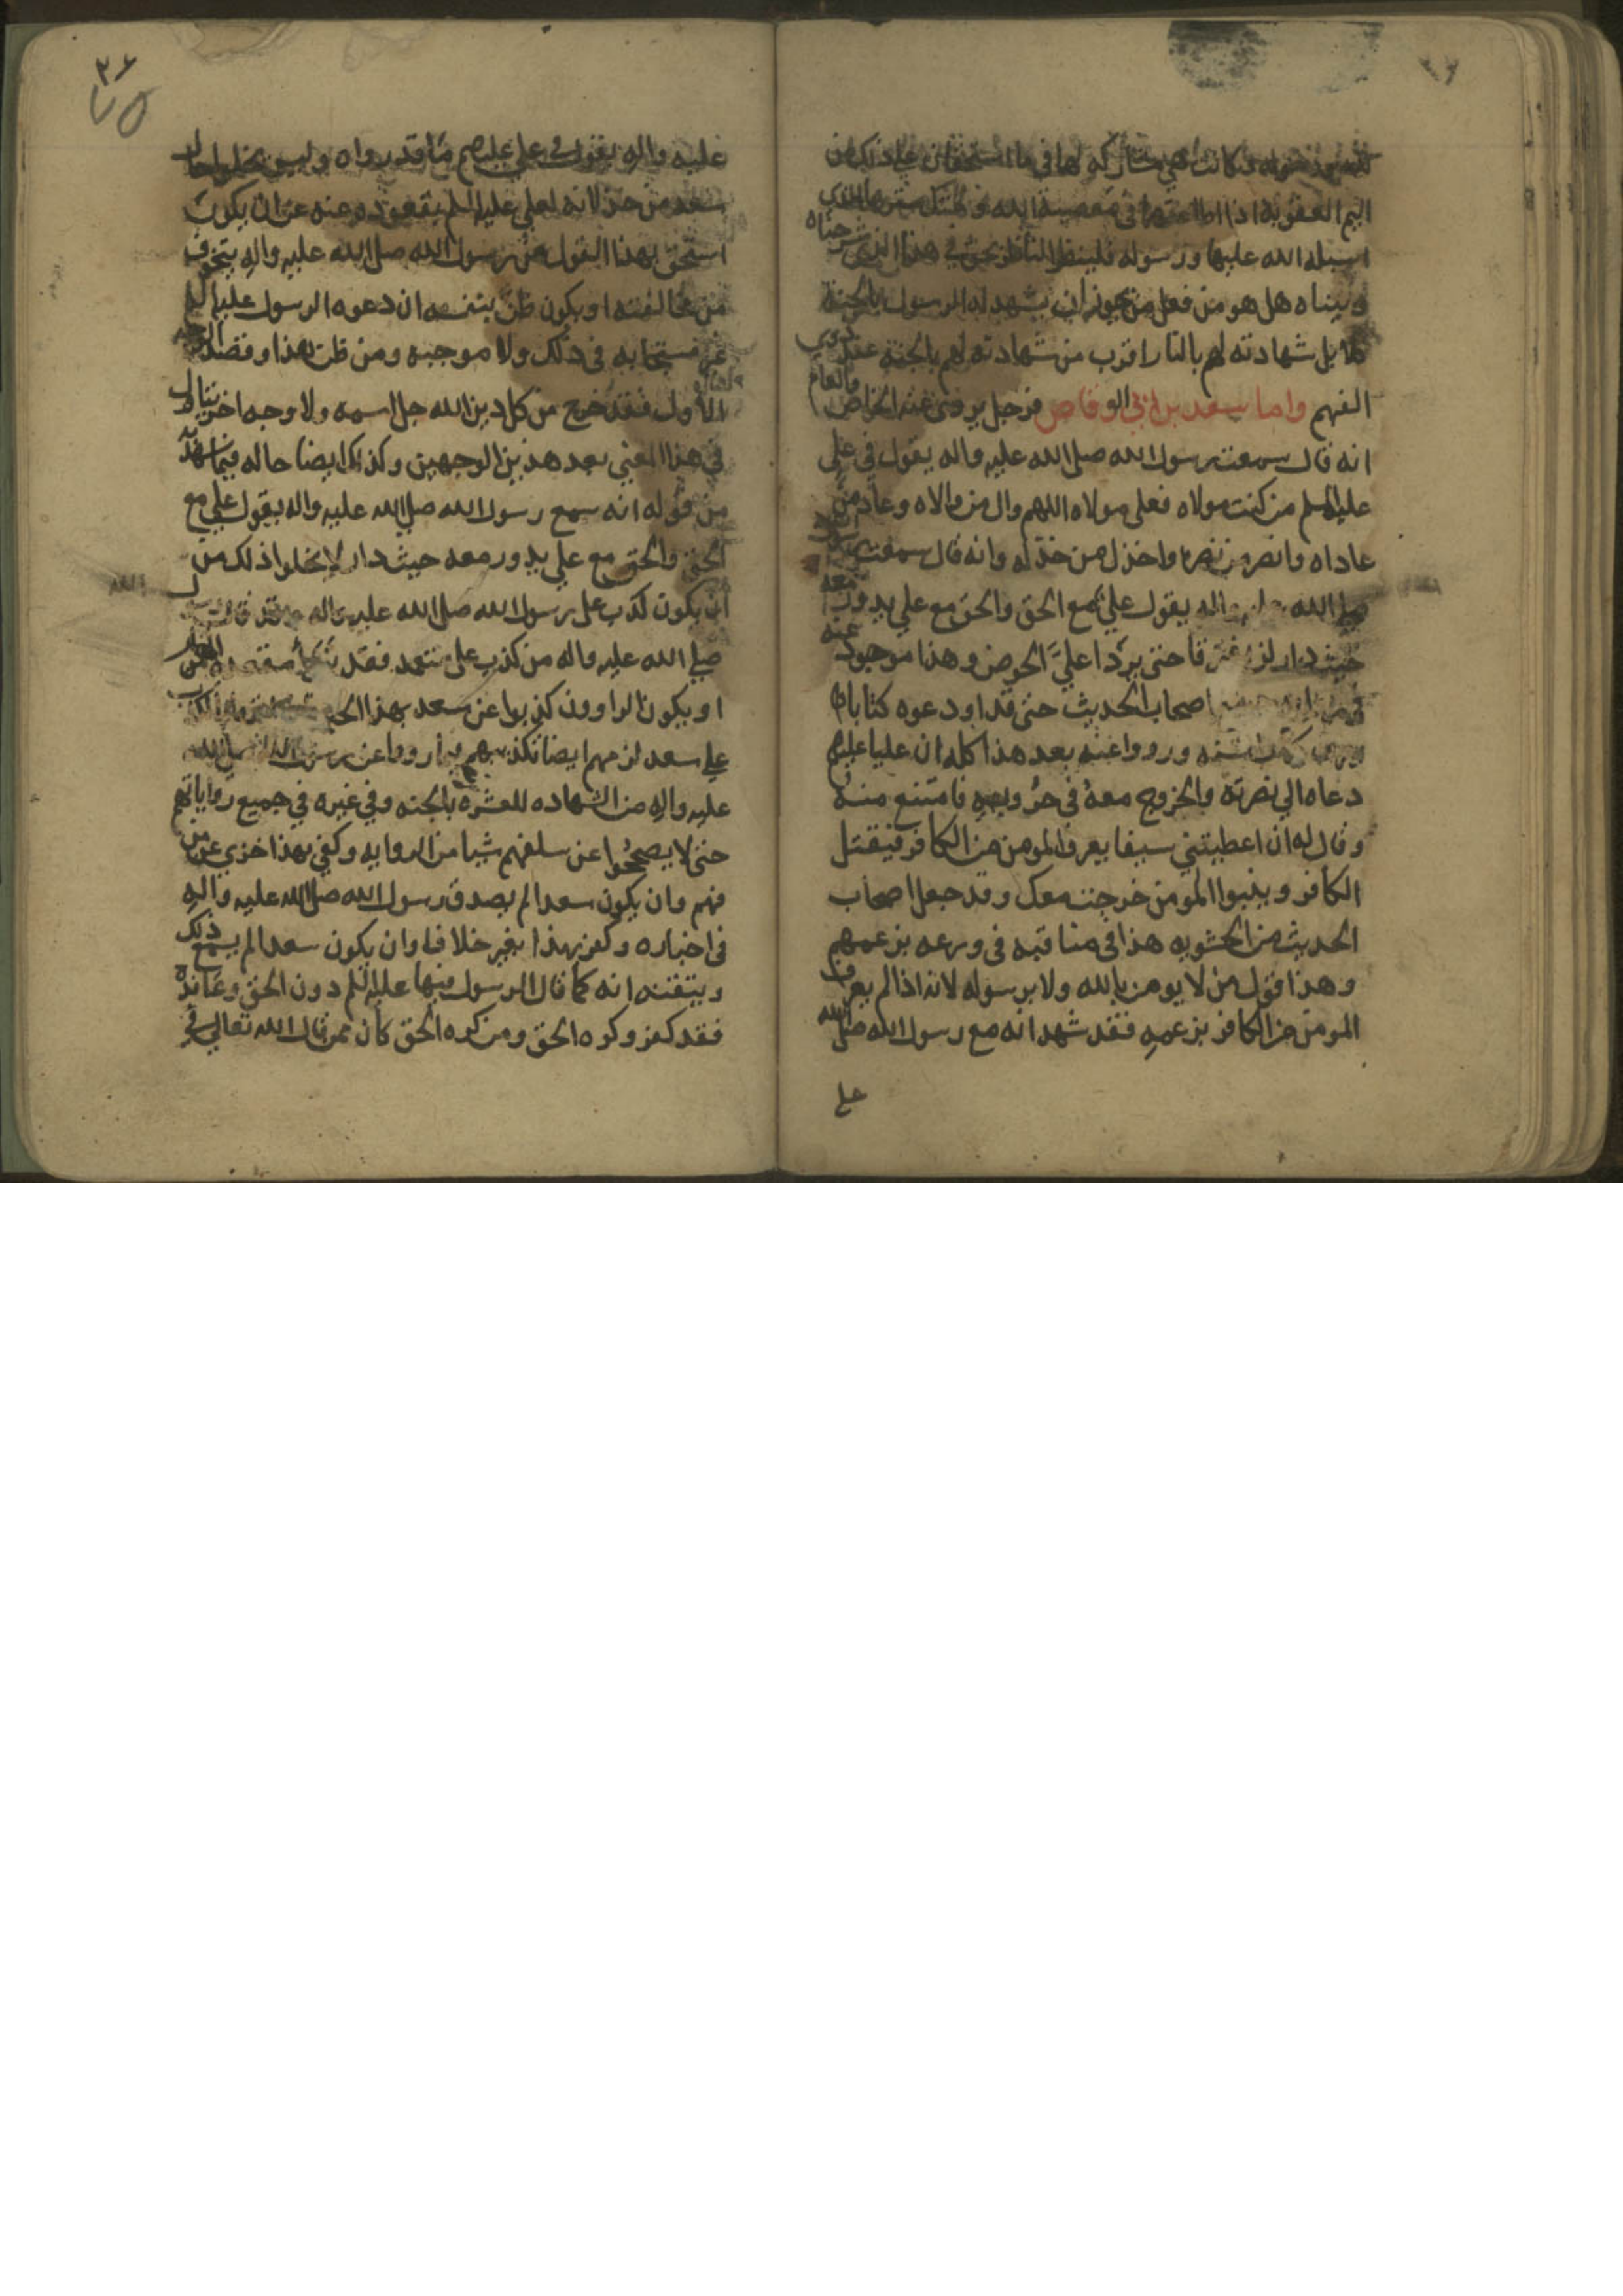 اليم العقوبة اذا اطاعتها في معصية الله وهتك سترها الذي
اسبله الله عليها ورسوله فلينظر الناظر بحق في هذا الذي شرحناه
وبيناه هل هو من فعل من يجوز ان يشهد له الرسول بالجنة
كلا بل شهادته لهم بالنار اقرب من شهادته لهم بالجنة عند ذوي
الفهم واما سعد بن ابي الوقاص فرجل يروي عنه الخاص والعام
انه قال سمعت رسول الله صلى الله عليه واله يقول في علي
عليه السلم من كنت مولاه فعلي مولاه اللهم وال من والاه وعاد من
عاداه وانصر من نصره واخذل من خذله وانه قال سمعت رسول الله
صلى الله عليه واله يقول علي مع الحق والحق مع علي يدور معه
حيث دار لن يفترقا حتى يردا علي الحوض وهذا موجود عنه
في اصحاب الحديث حتى قد اودعوه كتابا
ورووا عنه بعد هذا كله ان عليا عليه السلم
دعاه الي نصرته والخروج معه في حروبه فامتنع منه
وقال له ان اعطيتني سيفا يعرف المومن من الكافر فيقتل
الكافر وينبوا المومن خرجت معك وقد جعل اصحاب
الحديث من الحشويه هذا في مناقبه في ورعه بزعمهم
وهذا قول من لا يومن بالله ولا برسوله لانه اذا لم يعرف
المومن من الكافر بزعمه فقد شهد انه مع رسول الله صلى الله
علي
٢٦
٧٥
عليه واله يقول في علي عليه السلم ما قد رواه وليس يخلوا حال
سعد من خذلانه لعلي عليه السلم بقعوده عنه من ان يكون
استحق بهذا القول من رسول الله صلى الله عليه واله يتخوف
من مخالفته او يكون ظن بنفسه ان دعوه الرسول عليه السلم
غير مستجابه في ذلك ولا موجبه ومن ظن هذا وقصد الوجه
الاول فقد خرج من كل دين الله جل اسمه ولا وجه اخر يتاول
في هذا المعني بعد هذين الوجهين وكذلك ايضا حاله فيما شهد به
من قوله انه سمع رسول الله صلى الله عليه واله يقول علي مع
الحق والحق مع علي يدور معه حيث دار لا يخلوا ذلك من
ان يكون كذب على رسول الله صلى الله عليه واله وقد قال رسول الله
صلي الله عليه واله من كذب علي متعمد فقد تبوأ مقعده من النار
او يكون الراوون كذبوا عن سعد بهذا الخبر
علي سعد لزمهم ايضا تكذيبهم بما رووا عن رسول الله صلى الله
عليه واله من الشهاده للعشره بالجنه وفي غيره في جميع رواياتهم
حتى لا يصححوا عن سلفهم شيا من الروايه وكفي بهذا خزي عن من
فهم وان يكون سعد لم يصدق رسول الله صلى الله عليه واله
في اخباره وكفر بهذا بغير خلاف او ان يكون سعد لم يسمع ذلك
ويتقنه انه كما قال الرسول فيها عليه السلم دون الحق وعانده
فقد كفر وكره الحق ومن كره الحق كان ممن قال الله تعالي في